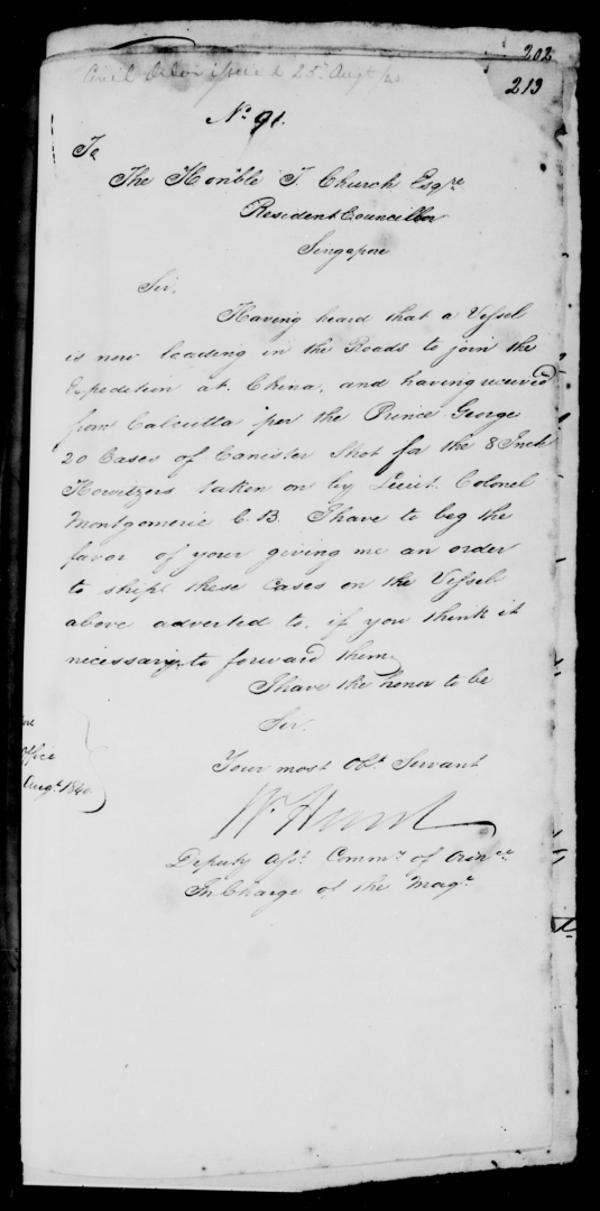 202
213
Civil Order issued 25th Augt /40
No 91.
To
The Honible T. Church Esqre
Resident Councillor
Singapore
Sir,
Having heard that a Vessel
is now loading in the Roads to join the
Expedition at China, and having received
from Calcutta per the Prince George
20 Cases of Canister Shot for the 8 Inch
Howitzers taken on by Lieut. Colonel
Montgomerie C.B. I have to beg the
favor of your giving me an order
to ship these Cases on the Vessel
above adverted to, if you think it
necessary to forward them
I have the honor to be
Sir,
Your most Obt Servant
W Hunt
Deputy Asst Commy of Ordnce
In Charge of the Magе
ore
Office
Augt 1840